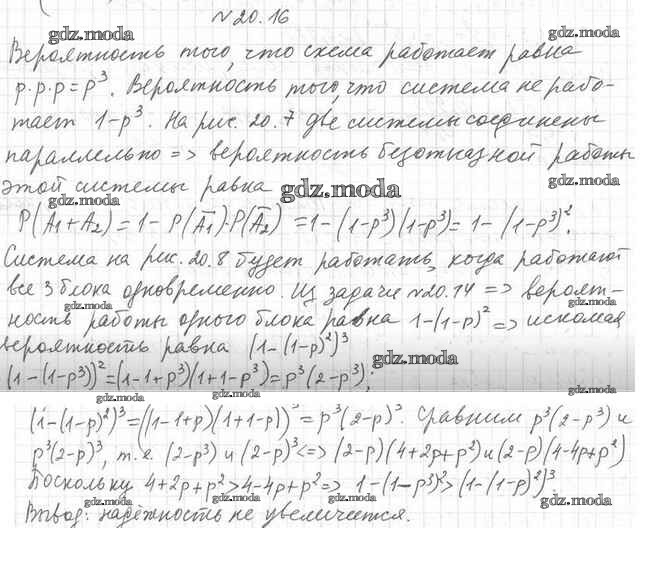 №20.16
gdz.moda gdz.moda
Вероятность того, что схема работает равна
p·p·p=p³. Вероятность того, что система не рабо-
тает 1-p³. На рис. 20.7 две системы соединены
gdz.moda
параллельно => вероятность безотказной работы
этой системы равна gdz.moda gdz.moda
gdz.moda
P(A₁+A₂)=1-P(Ā₁)·P(Ā₂)=1-(1-p³)(1-p³)=1-(1-p³)².
Система на рис. 20.8 будет работать, когда работают
все 3 блока одновременно. Из задачи №20.14 => вероят-
gdz.moda gdz.moda
ность работы одного блока равна 1-(1-p)² => искомая
вероятность равна (1-(1-p)²)³
gdz.moda
(1-(1-p³))²=(1-1+p³)(1+1-p³)=p³(2-p³);
gdz.moda gdz.moda
(1-(1-p)²)³=((1-1+p)(1+1-p))³=p³(2-p)³. Сравним p³(2-p³) и
p³(2-p)³, т.е. (2-p³) и (2-p)³<=>(2-p)(4+2p+p²) и (2-p)(4-4p+p²)
Поскольку 4+2p+p²>4-4p+p²=> 1-(1-p³)²>(1-(1-p)²)³
gdz.moda gdz.moda gdz.moda gdz.moda
Вывод: надёжность не увеличится.